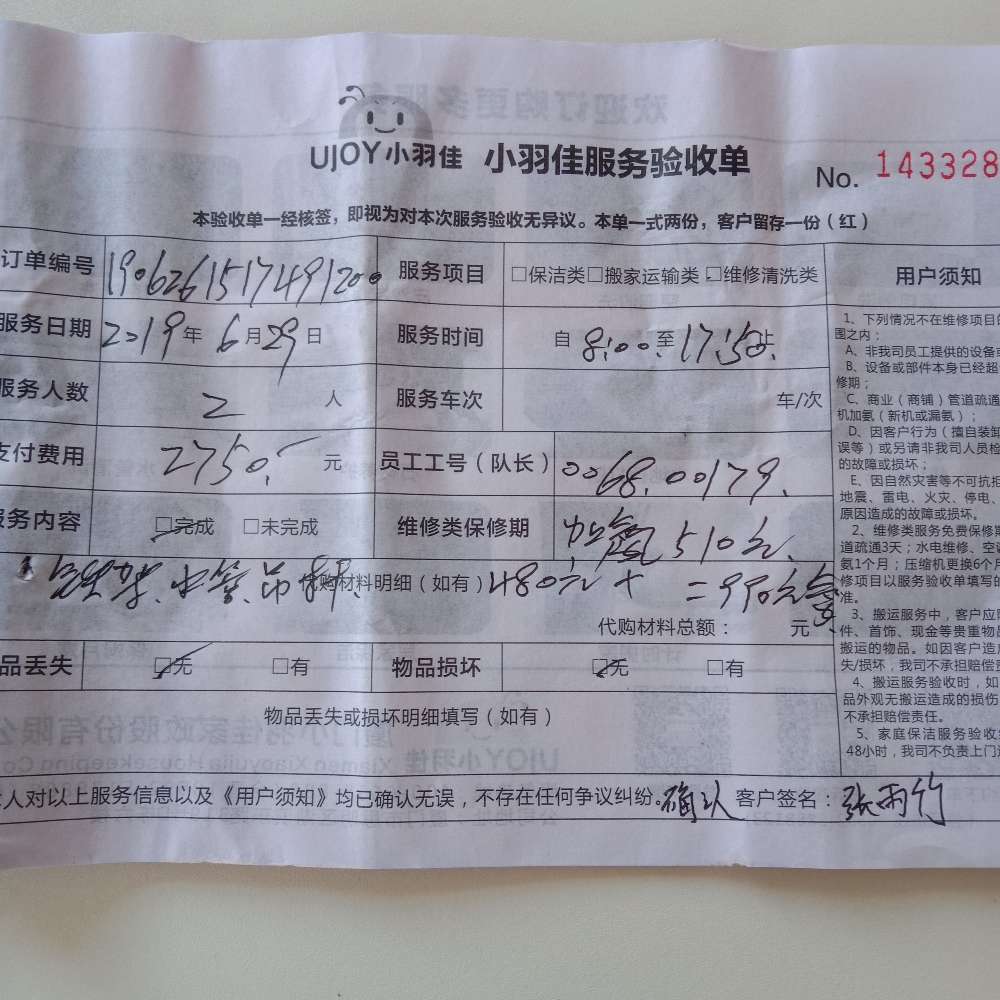 UJOY小羽佳 小羽佳服务验收单 No. 143328
本验收单一经核签，即视为对本次服务验收无异议。本单一式两份，客户留存一份（红）
订单编号 1906261517491200 服务项目 □保洁类□搬家运输类□维修清洗类 用户须知
服务日期 2019年 6月29日 服务时间 自 8:00 至 17:50 止
服务人数 2 人 服务车次 车/次
支付费用 2750. 元 员工工号（队长） 0068.00179.
服务内容 □完成 □未完成 维修类保修期 加氟510元.
代购材料明细（如有） 480元 + = 990元
代购材料总额： 元
品丢失 □无 □有 物品损坏 □无 □有
物品丢失或损坏明细填写（如有）
人对以上服务信息以及《用户须知》均已确认无误，不存在任何争议纠纷。确认 客户签名：张雨竹
1、下列情况不在维修项目的
围之内：
A、非我司员工提供的设备或
B、设备或部件本身已经超
修期；
C、商业（商铺）管道疏通
机加氨（新机或漏氨）；
D、因客户行为（擅自装卸
误等）或另请非我司人员检
的故障或损坏；
E、因自然灾害等不可抗拒
地震、雷电、火灾、停电、
原因造成的故障或损坏。
2、维修类服务免费保修期
道疏通3天；水电维修、空调
氨1个月；压缩机更换6个月
修项目以服务验收单填写的
准。
3、搬运服务中，客户应
件、首饰、现金等贵重物品
搬运的物品。如因客户造成
失/损坏，我司不承担赔偿责
4、搬运服务验收时，如
品外观无搬运造成的损伤
不承担赔偿责任。
5、家庭保洁服务验收
48小时，我司不负责上门